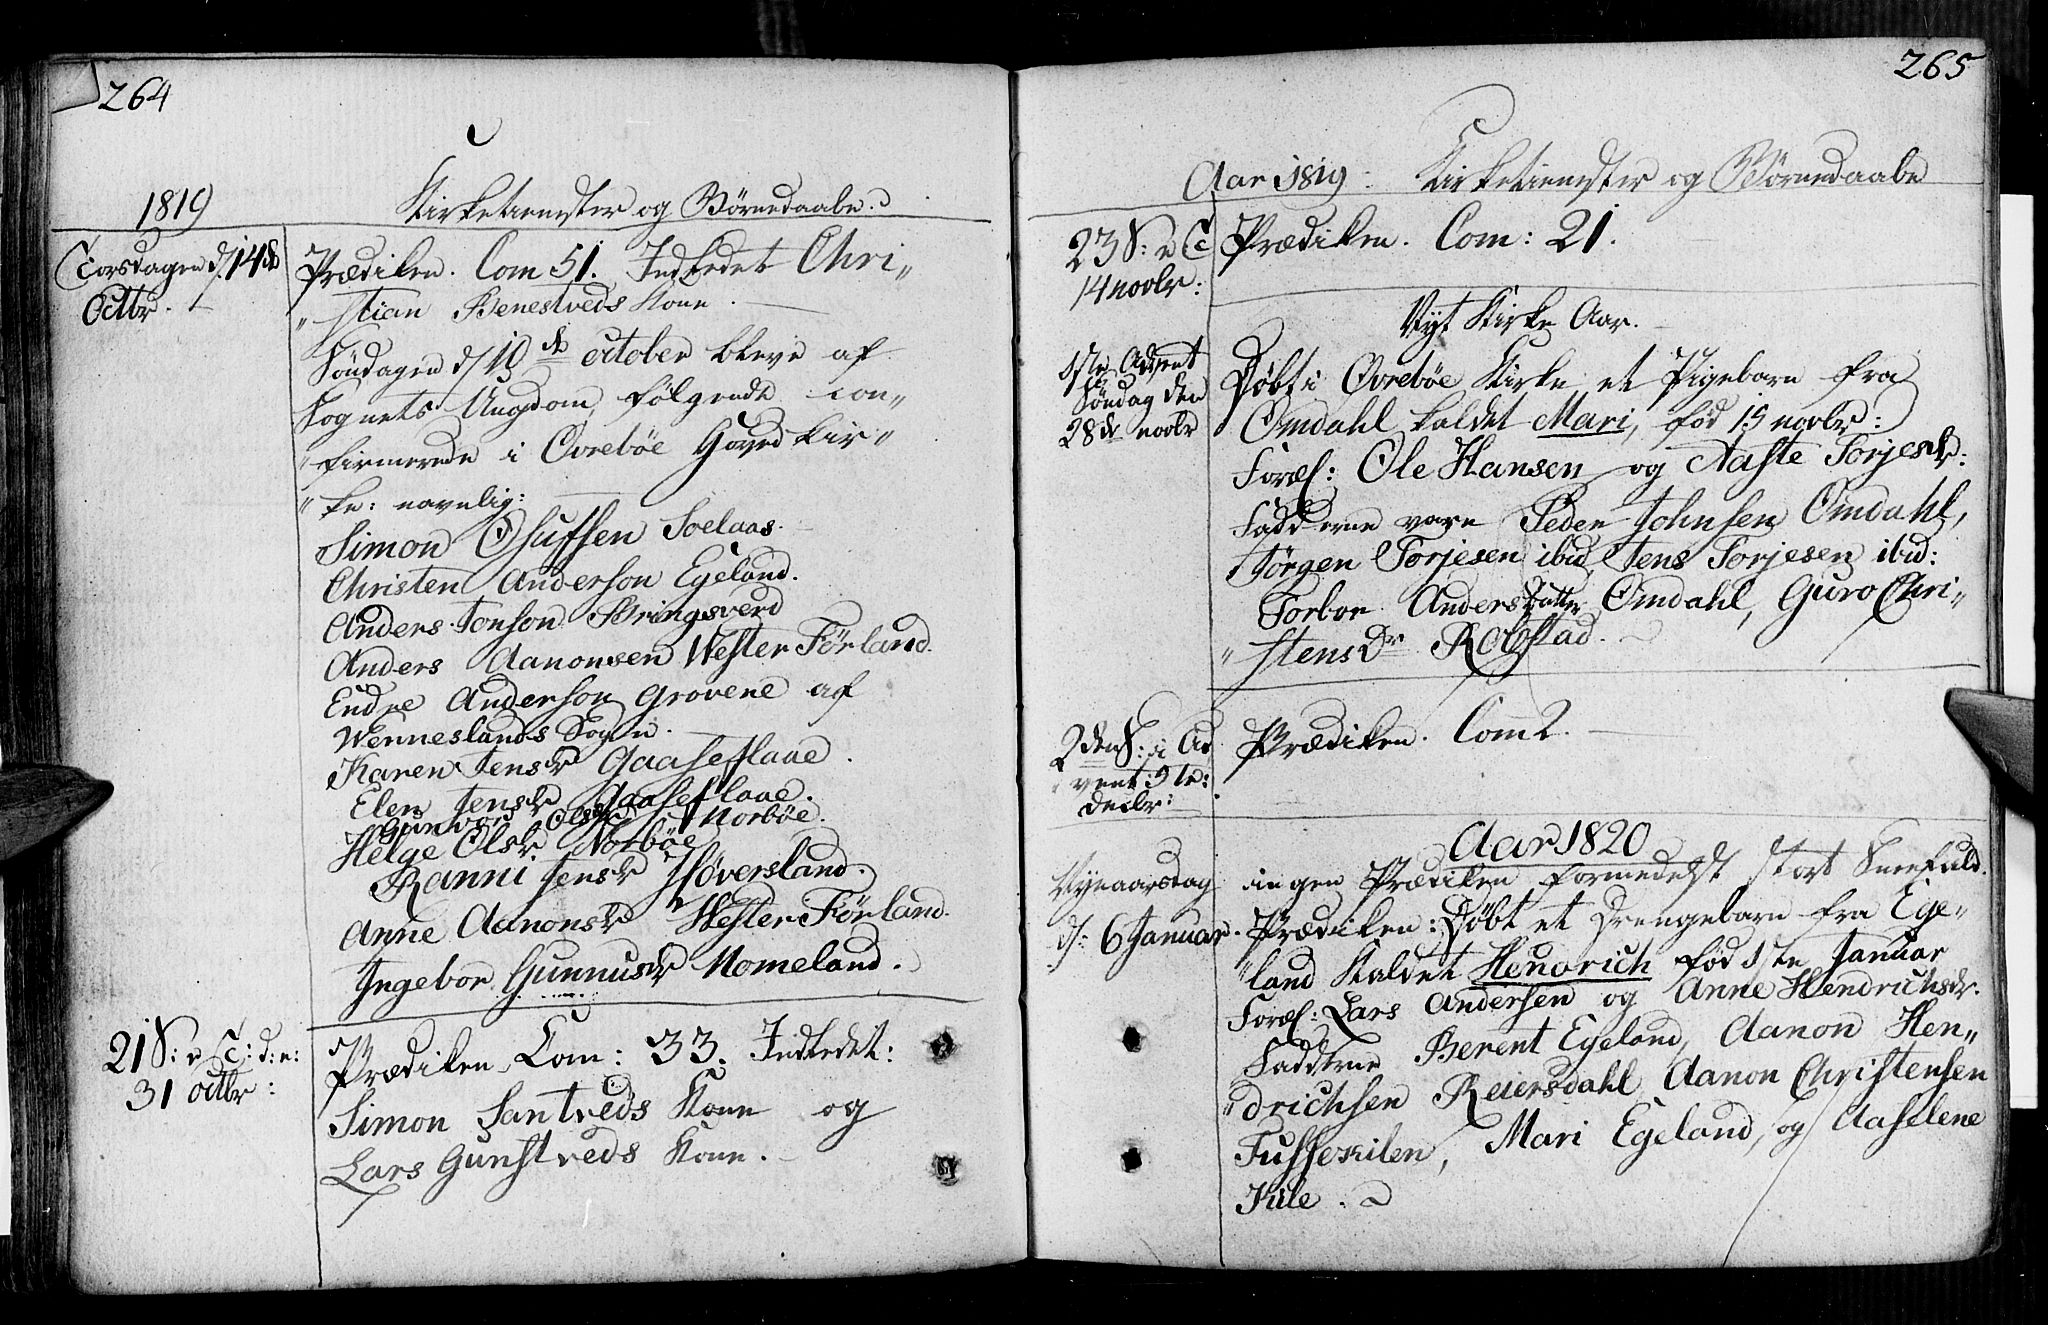 264
1819
Kirketienester og Börnedaabe.
Torsdagen d/14de
Octbr.
Prædiken. Com 51. Indledet Chri„
„stian Benestveds Kone.
Söndagen d/10de october bleve af
Sognets Ungdom, følgende con„
„firmerede i Øvrebøe Hoved Kir„
„ke: navnlig:
Simon Osufsen
Christen Anderson Egeland.
Anders Jonson Bringsverd
Anders Aanonsen Wester Förland.
Endre Anderson Grovene af
Wenneslands Sogn.
Karen Jensdr Gaaseflaae.
Elen Jensdr Gaaseflaae.
Gunvor Olsdr Norböe.
Helge Olsdr Norböe
Ranni Jensdr Høversland.
Anne Aanonsdr Wester Förland.
Ingebor Gunnusdr Momeland.
21 S: e T: d: e:
31 octbr:
Prædiken. Com: 33. Indledet:
Simon Santveds Kone og
Lars Gunstveds Kone.
265
Aar 1819. Kirketienester og Börnedaabe
23 S: e T
14 novbr:
Prædiken. Com: 21.
Nyt Kirke Aar.
1ste Advent
Söndag den
28de novbr
Døbt i Øvrebøe Kirke et Pigebarn fra
Omdahl kaldet Mari, fød 15 novbr:
Foræl: Ole Hansen og Aaste Torjesdr:
Fadderne vare Peder Johnsen Omdahl,
Jørgen Torjesen ibid, Jens Torjesen ibid:
Torbor Andersdatter Omdahl, Guro Chri„
„stens Dr Robstad.
2den S: i Ad
vent: 5te
decbr:
Prædiken. Com 2.
Aar 1820
Nyeaarsdag
ingen Prædiken formedelst stort Sneefald.
d: 6 Januar.
Prædiken: Døbt et Drengebarn fra Ege„
„land Kaldet Hendrich fød 1ste Januar
Foræl: Lars Andersen og Anne Hendrichsdr.
Fadderne Berent Egeland, Aanon Hen„
„drichsen Reiersdahl, Aanon Christensen
Fusserilen, Mari Egeland, og Aaselene
Kule.